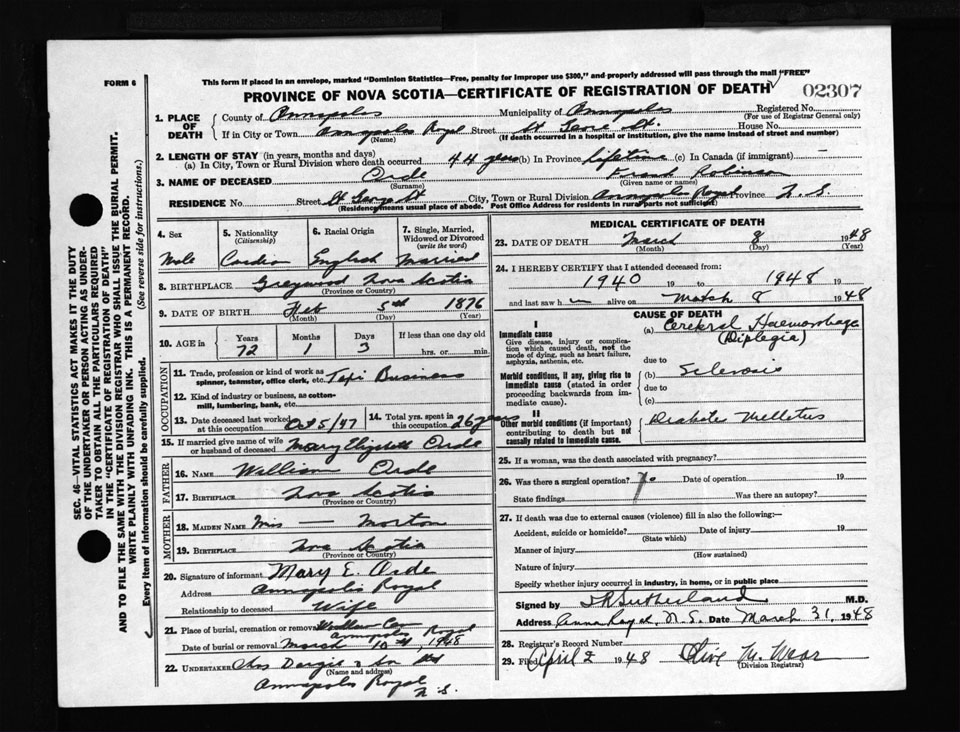 FORM 6
This form if placed in an envelope, marked "Dominion Statistics—Free, penalty for improper use $300," and properly addressed will pass through the mail "FREE"
PROVINCE OF NOVA SCOTIA—CERTIFICATE OF REGISTRATION OF DEATH
02307
1. PLACE OF DEATH
County of Annapolis Municipality of Annapolis Registered No.
(For use of Registrar General only)
If in City or Town Annapolis Royal Street St House No.
(Name) (If death occurred in a hospital or institution, give the name instead of street and number)
2. LENGTH OF STAY (in years, months and days)
(a) In City, Town or Rural Division where death occurred 44 years (b) In Province Lifetime (c) In Canada (if immigrant) —
3. NAME OF DECEASED Orde Frank Robinson
(Surname) (Given name or names)
RESIDENCE No. Street St George St City, Town or Rural Division Annapolis Royal Province N. S.
(Residence means usual place of abode. Post Office Address for residents in rural parts not sufficient)
4. Sex
Male
5. Nationality
(Citizenship)
6. Racial Origin
English
7. Single, Married, Widowed or Divorced
(write the word)
Married
8. BIRTHPLACE Greywood Nova Scotia
(Province or Country)
9. DATE OF BIRTH Feb 5th 1876
(Month) (Day) (Year)
10. AGE in
Years Months Days If less than one day old
72 1 3 hrs. or min.
OCCUPATION
11. Trade, profession or kind of work as spinner, teamster, office clerk, etc. Taxi Business
12. Kind of industry or business, as cotton-mill, lumbering, bank, etc.
13. Date deceased last worked at this occupation Oct 5/47
14. Total yrs. spent in this occupation 26 years
15. If married give name of wife or husband of deceased Mary Elizabeth Orde
FATHER
16. NAME William Orde
17. BIRTHPLACE Nova Scotia
(Province or Country)
MOTHER
18. MAIDEN NAME Miss — Morton
19. BIRTHPLACE Nova Scotia
(Province or Country)
20. Signature of informant Mary E. Orde
Address Annapolis Royal
Relationship to deceased Wife
21. Place of burial, cremation or removal Annapolis Royal
Date of burial or removal March 10th, 1948
22. UNDERTAKER Chas Dargie & Son Ltd
(Name and address)
Annapolis Royal
N. S.
MEDICAL CERTIFICATE OF DEATH
23. DATE OF DEATH March 8 1948
(Month) (Day) (Year)
24. I HEREBY CERTIFY that I attended deceased from:
1940 19 to 1948 19
and last saw h im alive on March 8 1948
CAUSE OF DEATH
I
Immediate cause
Give disease, injury or complication which caused death, not the mode of dying, such as heart failure, asphyxia, asthenia, etc.
(a) Cerebral Haemorrhage
(Diplegia)
due to
Morbid conditions, if any, giving rise to immediate cause (stated in order proceeding backwards from immediate cause).
(b) Sclerosis
due to
(c)
II
Other morbid conditions (if important) contributing to death but not causally related to immediate cause.
Diabetes Mellitus
25. If a woman, was the death associated with pregnancy?
26. Was there a surgical operation? No Date of operation 19
State findings Was there an autopsy?
27. If death was due to external causes (violence) fill in also the following:—
Accident, suicide or homicide? Date of injury 19
(State which)
Manner of injury
(How sustained)
Nature of injury
Specify whether injury occurred in industry, in home, or in public place
Signed by Sutherland M.D.
Address Anna Royal N. S. Date March 31, 1948
28. Registrar's Record Number
29. Filed April 2 1948 Olive M.
(Division Registrar)
SEC. 46—VITAL STATISTICS ACT MAKES IT THE DUTY
OF THE UNDERTAKER OR PERSON ACTING AS UNDER-
TAKER TO OBTAIN ALL THE PARTICULARS REQUIRED
IN THE "CERTIFICATE OF REGISTRATION OF DEATH"
AND TO FILE THE SAME WITH THE DIVISION REGISTRAR WHO SHALL ISSUE THE BURIAL PERMIT.
WRITE PLAINLY WITH UNFADING INK. THIS IS A PERMANENT RECORD.
Every item of information should be carefully supplied. (See reverse side for instructions.)